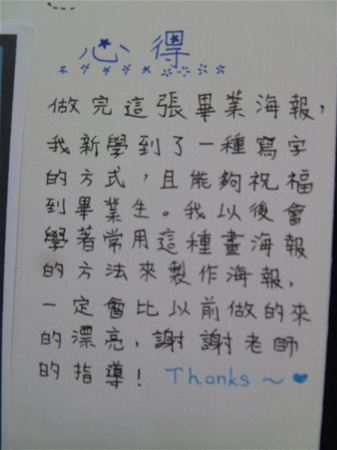 心得
做完這張畢業海報，
我新學到了一種寫字
的方式，且能夠祝福
到畢業生。我以後會
學著常用這種畫海報
的方法來製作海報，
一定會比以前做的來
的漂亮，謝謝老師
的指導！Thanks～♥